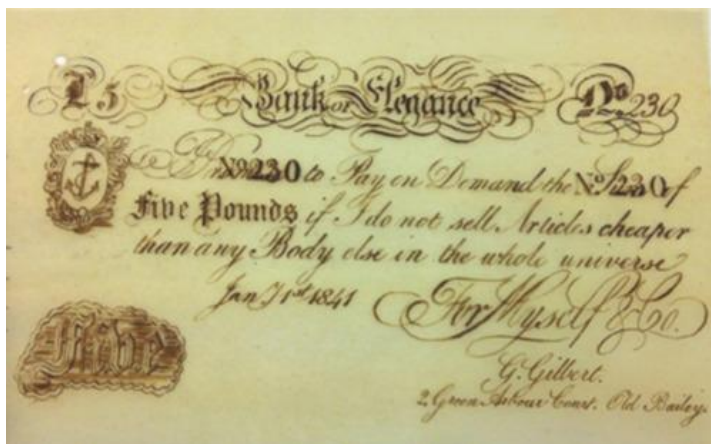 £5 Bank of Elegance No. 230
I Promise to Pay on Demand the Sum of
No. 230 No. 230
Five Pounds if I do not sell Articles cheaper
than any Body else in the whole universe
Jany 1st 1841 For Myself & Co.
Five
G. Gilbert.
2. Green Arbour Court. Old Bailey.